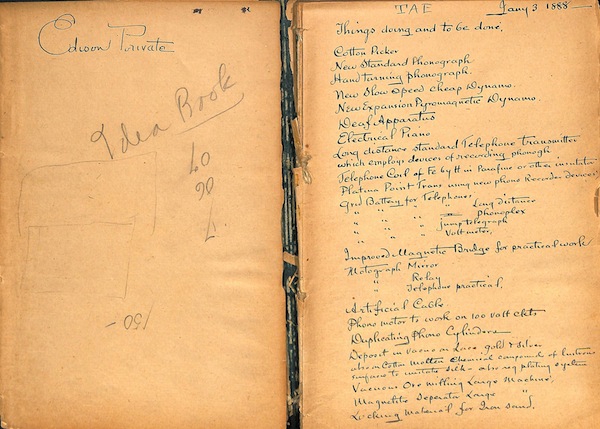 Edison Private
Idea Book
150 -
TAE Jany 3 1888
Things doing and to be done,
Cotton Picker
New Standard Phonograph
Hand turning phonograph.
New Slow Speed cheap Dynamo.
New Expansion Pyromagnetic Dynamo.
Deaf Apparatus
Electrical Piano
Long distance standard Telephone Transmitter
which employs devices of recording phonogh
Telephone Coil of Fe by tt in Parafine or other insulator
Platina Point Trans using new phono Recorder devices
Grd Battery for Telephones,
" " " Long distance
" " " Phonoplex
" " " Jump telegraph
" " " Voltmeter,
Improved Magnetic Bridge for practical work
Motograph Mirror
" Relay
" Telephone practical,
Artificial Cable
Phono motor to work on 100 volt ckts
Duplicating Phono Cylinders
Deposit in vacuo on Lace gold & silver
also on Cotton Molten Chemical compound of lustrous
surfaces to imitate silk - also reg plating system
Vacuous Ore milling Large Machine,
Magnetic Seperator Large "
Locking Material for Iron sand,